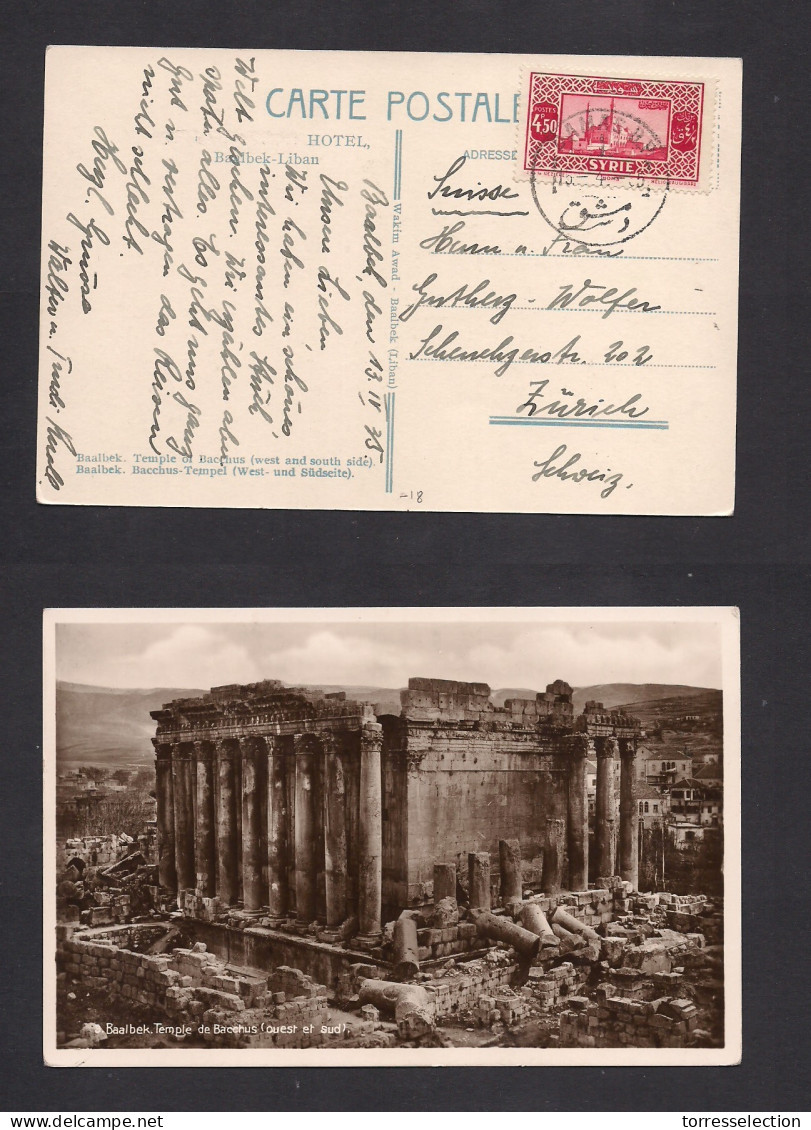 CARTE POSTALE
HOTEL,
Baalbek-Liban
ADRESSE
POSTES
4,50
SYRIE
DAMAS
دمشق
Wakim Awad - Baalbek (Liban)
Baalbek, den 13. IV 35.
Unsere Lieben
Wir haben ein schönes
interessantes Stück
Welt gesehen. Wir erzählen aber
später alles. Es geht uns ganz
gut u. vertragen das Reisen
nicht schlecht.
Herzl. Grüsse
Walter u. Trudi
Suisse
Herrn u. Frau
Gutherz - Wolfer
Scheuchzerstr. 202
Zürich
Schweiz.
Baalbek. Temple of Bacchus (west and south side).
Baalbek. Bacchus-Tempel (West- und Südseite).
-18
9. Baalbek. Temple de Bacchus (ouest et sud).
torresselection